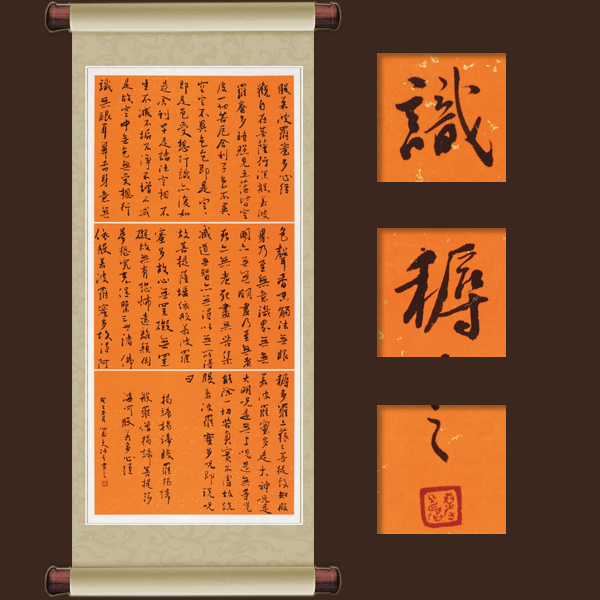 般若波羅蜜多心經
觀自在菩薩行深般若波
羅蜜多時照見五蘊皆空
度一切苦厄舍利子色不異
空空不異色色即是空空
即是色受想行識亦復如
是舍利子是諸法空相不
生不滅不垢不淨不增不減
是故空中無色無受想行
識無眼耳鼻舌身意無
色聲香味觸法無眼
界乃至無意識界無無
明亦無無明盡乃至無老
死亦無老死盡無苦集
滅道無智亦無得以無所得
故菩提薩埵依般若波羅
蜜多故心無罣礙無罣
礙故無有恐怖遠離顛倒
夢想究竟涅槃三世諸佛
依般若波羅蜜多故得阿
耨多羅三藐三菩提故知般
若波羅蜜多是大神咒是
大明咒是無上咒是無等等咒
能除一切苦真實不虛故說
般若波羅蜜多咒即說咒
曰
揭諦揭諦般羅揭諦
般羅僧揭諦菩提莎
婆訶般若多心經
識
耨
之